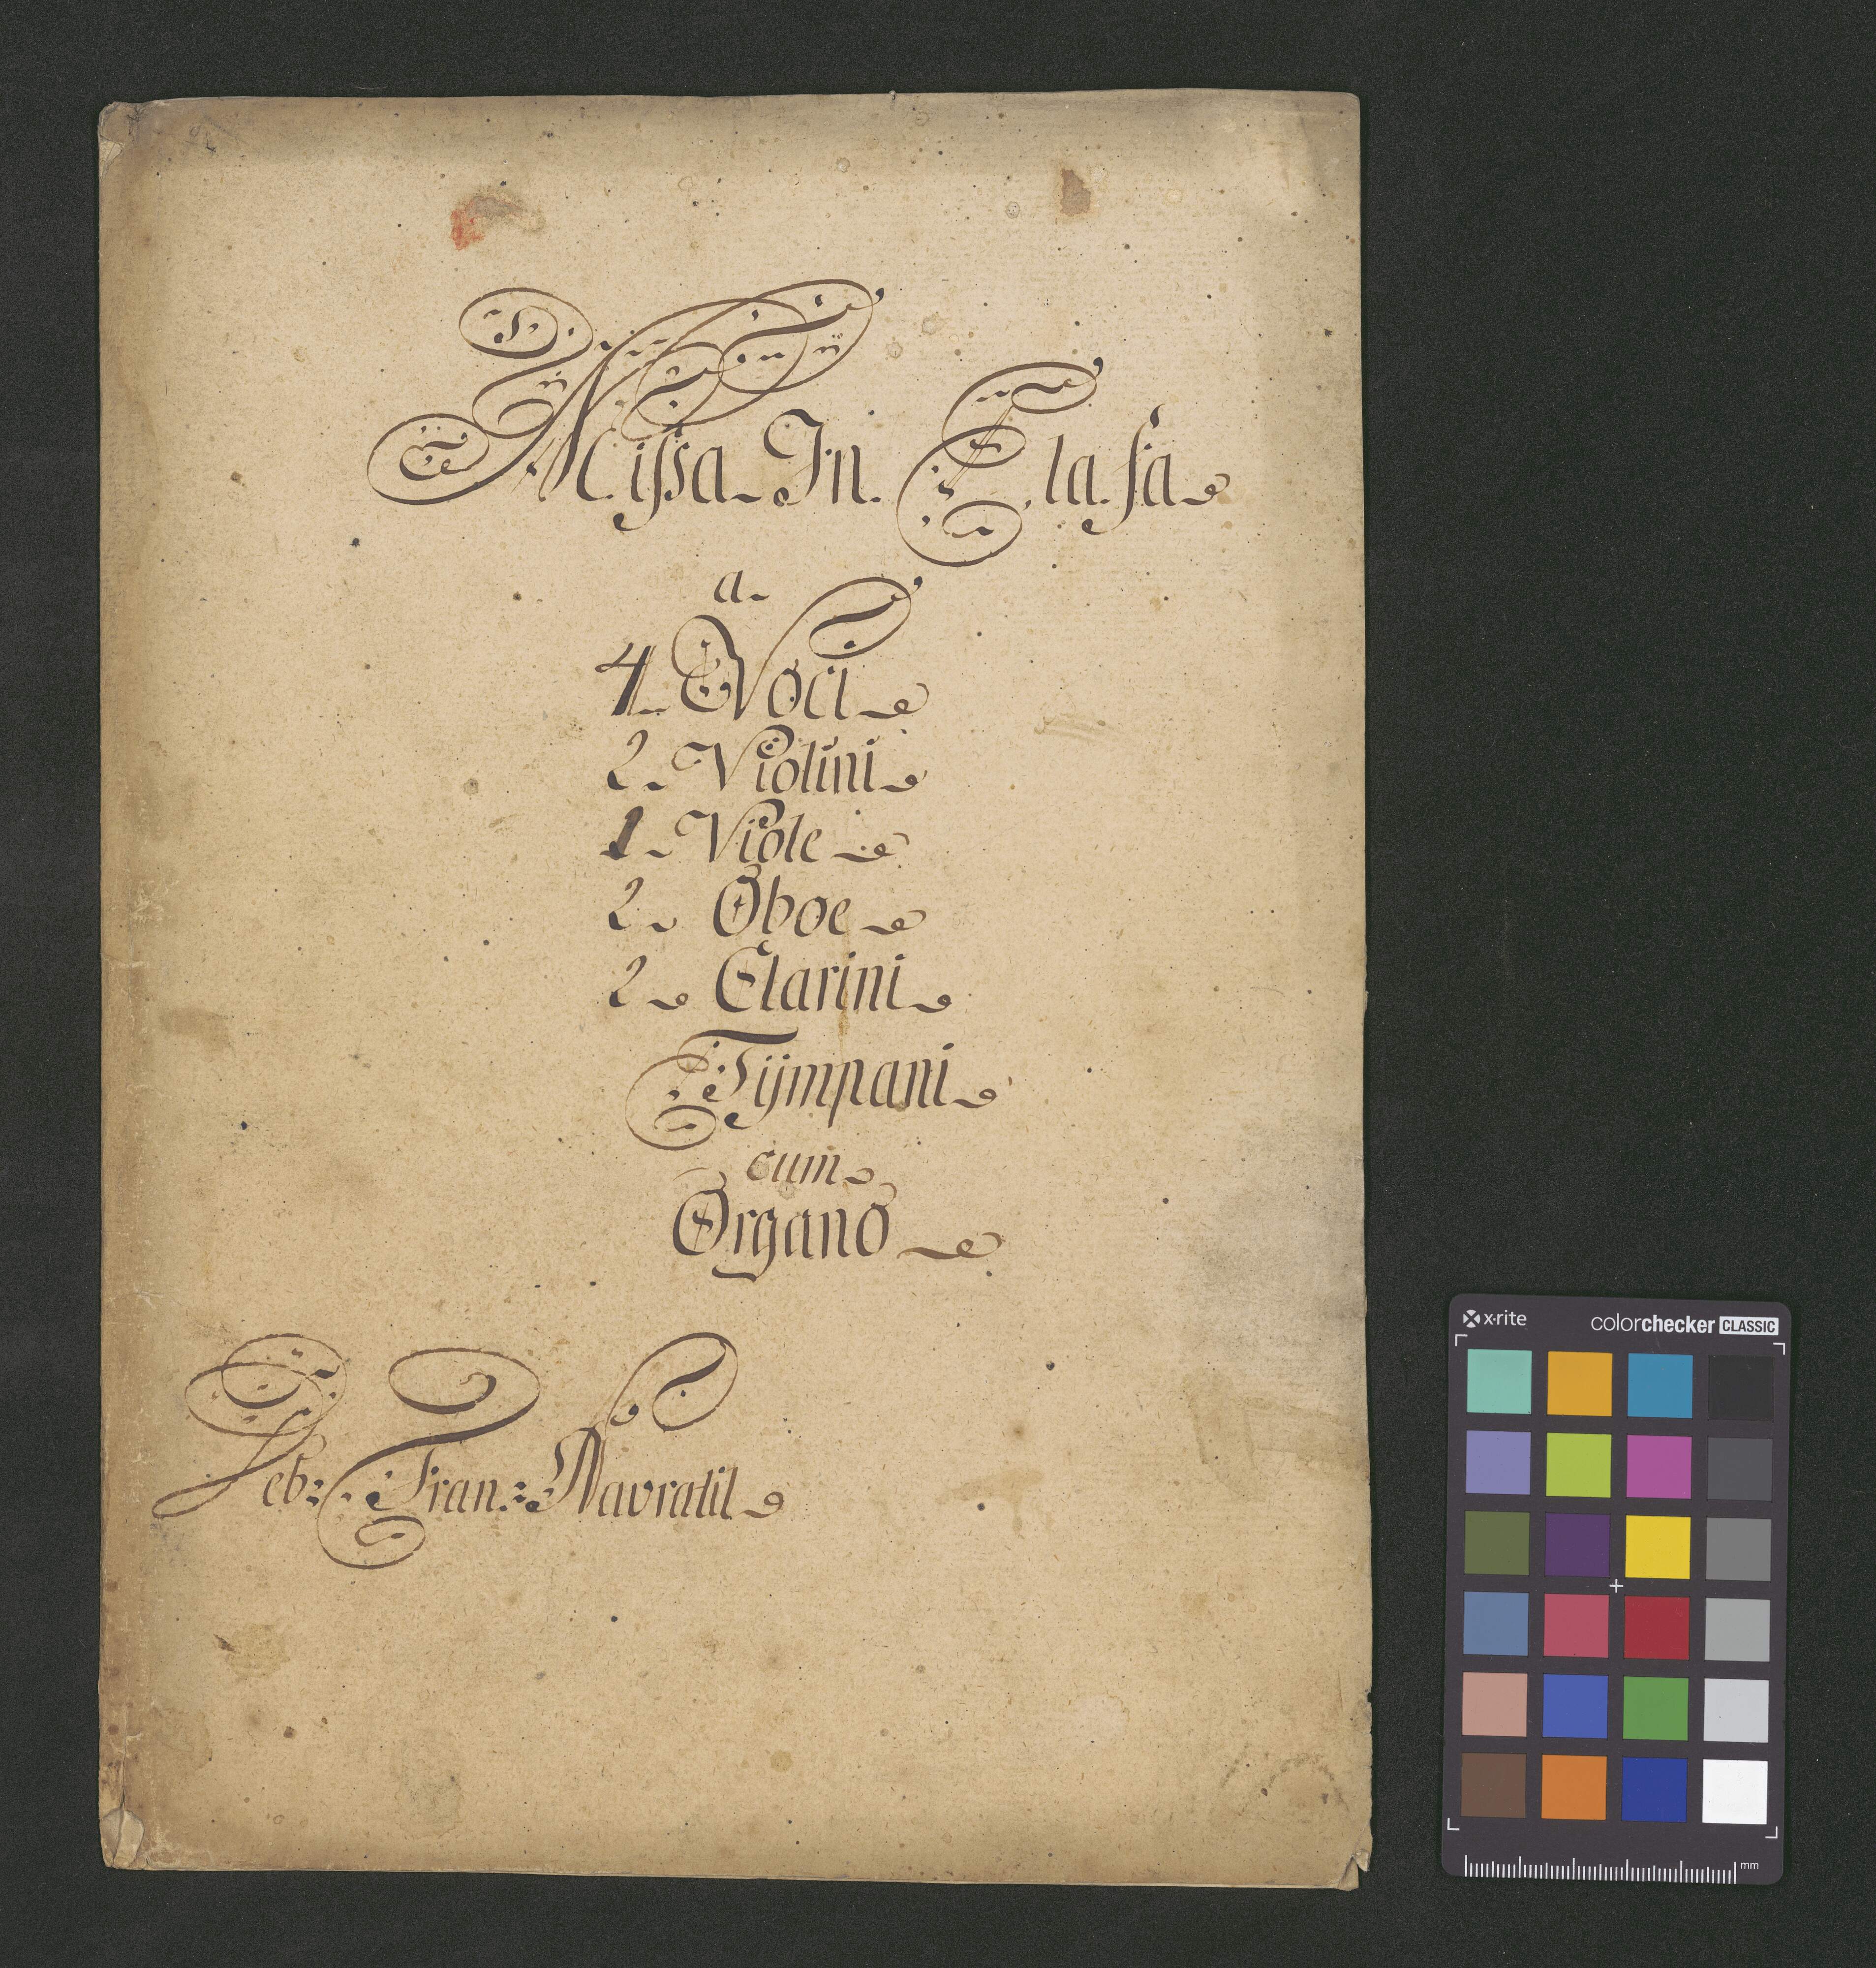 Missa In. E la. fa
a.
4. Voci
2. Violini
1. Viole
2. Oboe
2. Clarini
Tijmpani
cum
Organo
Seb: Fran: Navratil
x·rite colorchecker CLASSIC
mm